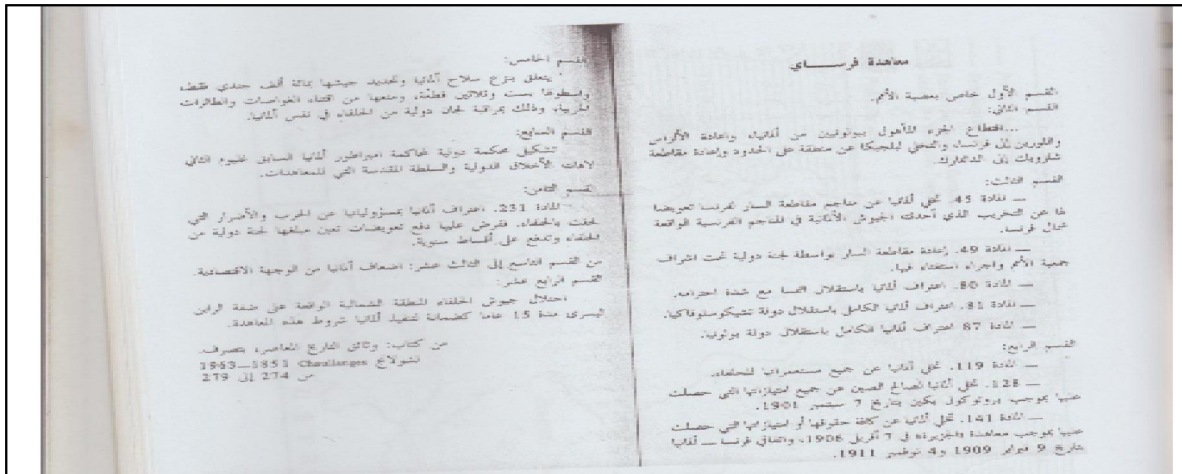 معاهدة فرســـاي
القسم الأول خاص بعصبة الأمم.
القسم الثاني:
...اقتطاع الجزء المأهول ببولونيين من ألمانيا، وإعادة الألزاس
واللورين إلى فرنسا، والتخلي لبلجيكا عن منطقة على الحدود وإعادة مقاطعة
شلزويك إلى الدنمارك.
القسم الثالث:
— المادة 45. تخلي ألمانيا عن مناجم مقاطعة السار لفرنسا تعويضا
لها عن التخريب الذي أحدثته الجيوش الألمانية في المناجم الفرنسية الواقعة
شمال فرنسا.
— المادة 49. إدارة مقاطعة السار بواسطة لجنة دولية تحت اشراف
جمعية الأمم واجراء استفتاء فيها.
— المادة 80. اعتراف ألمانيا باستقلال النمسا مع شدة احترامه.
— المادة 81. اعتراف ألمانيا الكامل باستقلال دولة تشيكوسلوفاكيا.
— المادة 87 اعتراف ألمانيا الكامل باستقلال دولة بولونيا.
القسم الرابع:
— المادة 119. تخلي ألمانيا عن جميع مستعمراتها للحلفاء.
— 128. تخلي ألمانيا لصالح الصين عن جميع امتيازاتها التي حصلت
عليها بموجب بروتوكول بكين بتاريخ 7 سبتمبر 1901.
— المادة 141. تخلي ألمانيا عن كافة حقوقها أو امتيازاتها التي حصلت
عليها بموجب معاهدة «الجزيرة» في 7 أفريل 1906، واتفاقي فرنسا — ألمانيا
بتاريخ 9 فبراير 1909 و4 نوفمبر 1911.
القسم الخامس:
يتعلق بنزع سلاح ألمانيا وتحديد جيشها بمائة ألف جندي فقط،
واسطولها بست وثلاثين قطعة، ومنعها من اقتناء الغواصات والطائرات
الحربية، وذلك بمراقبة لجان دولية من الحلفاء في نفس ألمانيا.
القسم السابع:
تشكيل محكمة دولية لمحاكمة امبراطور ألمانيا السابق غليوم الثاني
لاهانت الأخلاق الدولية والسلطة المقدسة التي للمعاهدات.
القسم الثامن:
المادة 231. اعتراف ألمانيا بمسؤولياتها عن الحرب والأضرار التي
لحقت بالحلفاء. ففرض عليها دفع تعويضات تعين مبلغها لجنة دولية من
الحلفاء وتدفع على أقساط سنوية.
من القسم التاسع إلى الثالث عشر: اضعاف ألمانيا من الوجهة الاقتصادية.
القسم الرابع عشر:
احتلال جيوش الحلفاء المنطقة الشمالية الواقعة على ضفة الراين
اليسرى مدة 15 عاما كضمانة لتنفيذ ألمانيا شروط هذه المعاهدة.
من كتاب: وثائق التاريخ المعاصر، بتصرف.
لشولانج Chaulanges 1851—1963
من 274 إلى 279